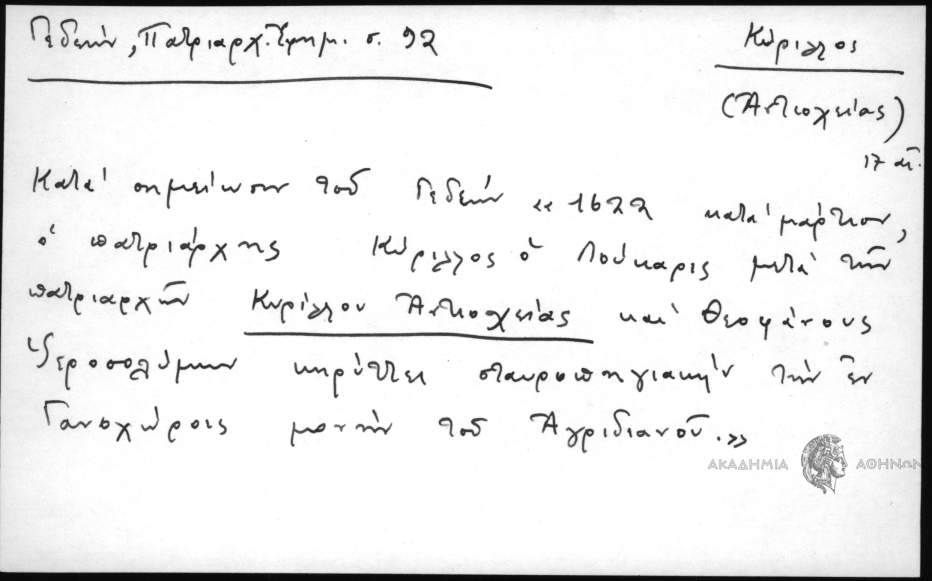 Γεδεών, Πατριαρχ. Ἐφημ. σ. 92
Κύριλλος
(Ἀντιοχείας)
17 αἰ.
Κατά σημείωσιν τοῦ Γεδεών «1622 κατά μάρτιον,
ὁ πατριάρχης Κύριλλος ὁ Λούκαρις μετά τῶν
πατριαρχῶν Κυρίλλου Ἀντιοχείας καί Θεοφάνους
Ἱεροσολύμων κηρύττει σταυροπηγιακήν τήν ἐν
Γανοχώροις μονήν τοῦ Ἀγριδιανοῦ.»
ΑΚΑΔΗΜΙΑ ΑΘΗΝΩΝ